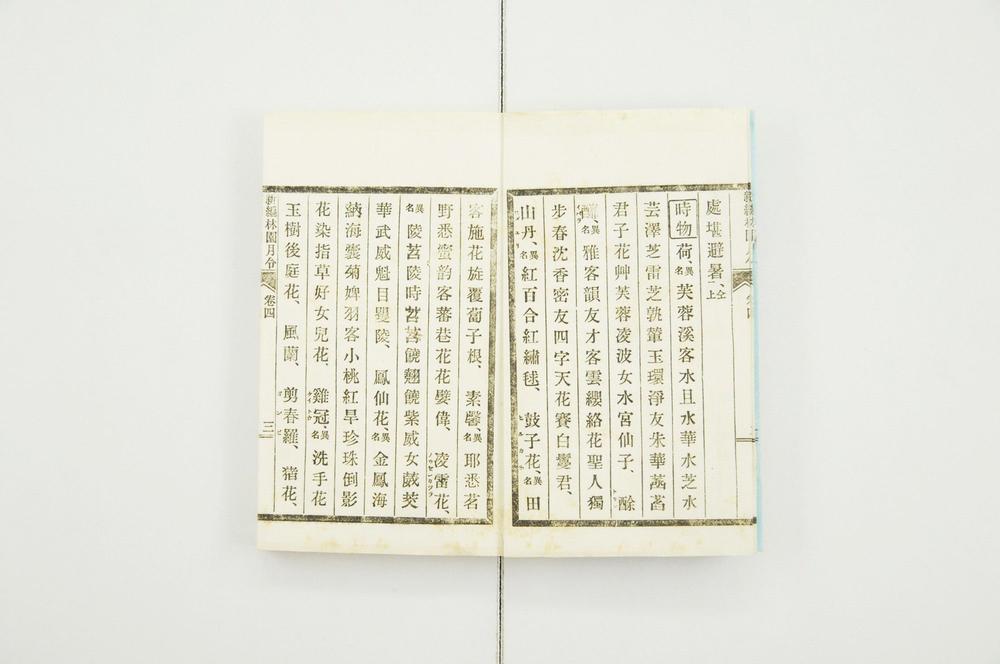 處堪避暑、仝上
時物 荷、異名芙蓉溪客水且水華水芝水
芸澤芝雷芝玉環淨友朱華菡萏
君子花艸芙蓉凌波女水宮仙子、
異名雅客韻友才客雲纓絡花聖人獨
步春沈香密友四字天花賽白鸞君、
山丹、異名紅百合紅繡毬、鼓子花、異名田
客施花旋覆蔔子根、素馨、異名耶悉茗
野悉蜜韵客蕃巷花花嬖偉、凌霄花、
異名陵苕陵時苕饒翹饒紫威女葳茭
華武威魁目瞿陵、鳳仙花、異名金鳳海
蒳海囊菊婢羽客小桃紅旱珍珠倒影
花染指草好女兒花、雞冠、異名洗手花
玉樹後庭花、風蘭、剪春羅、猪花、
新編林園月令 卷四 三